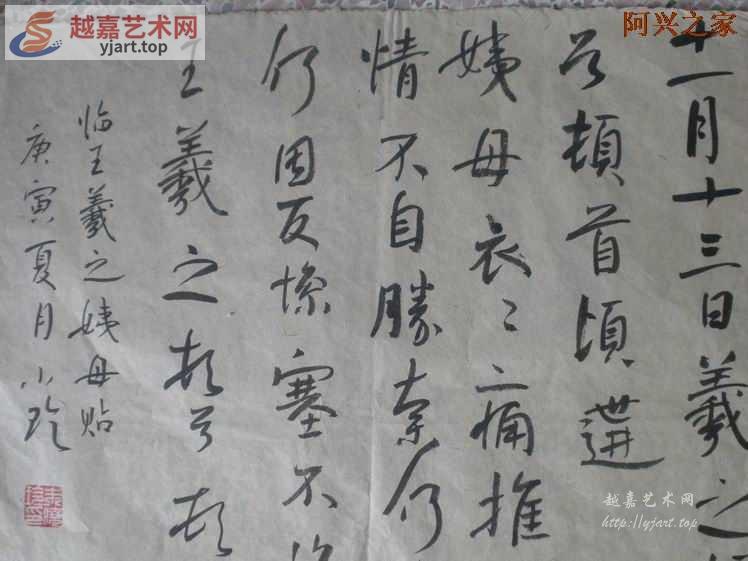 越嘉艺术网
yjart.top
阿兴之家
十一月十三日羲之
首頓首頃遘
姨母哀〻痛摧
情不自勝奈何
何因反慘塞不
王羲之頓首頓
临王羲之姨母贴
庚寅夏月小玲
越嘉艺术网
http://yjart.top